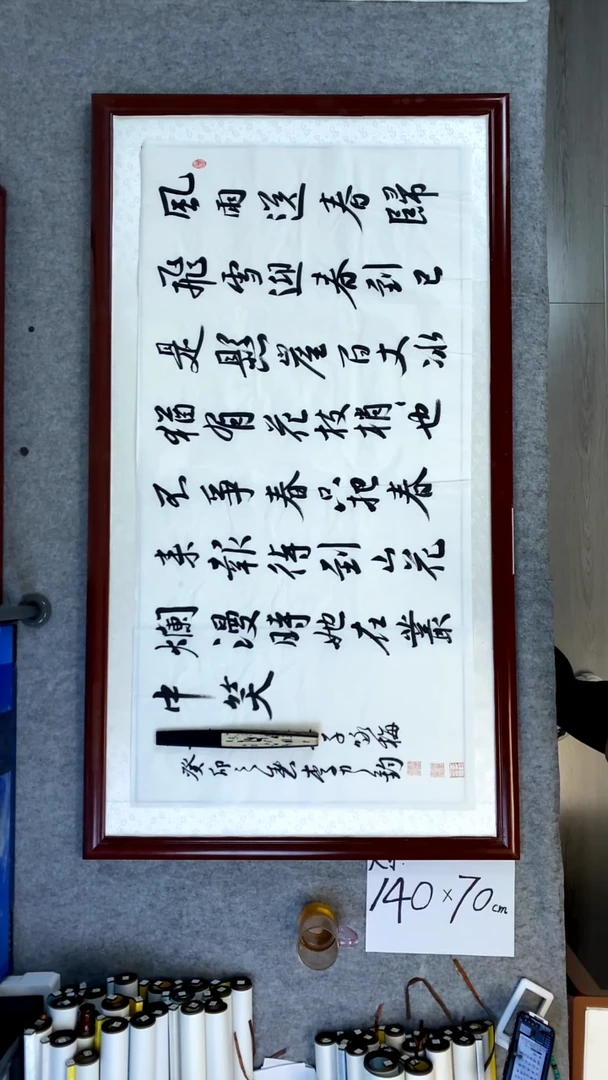 風雨送春歸
飛雪迎春到已
是懸崖百丈冰
猶有花枝梢也
不爭春只把春
来報待到山花
爛漫時她在叢
中笑
子詠梅
癸卯之春李
140×70cm